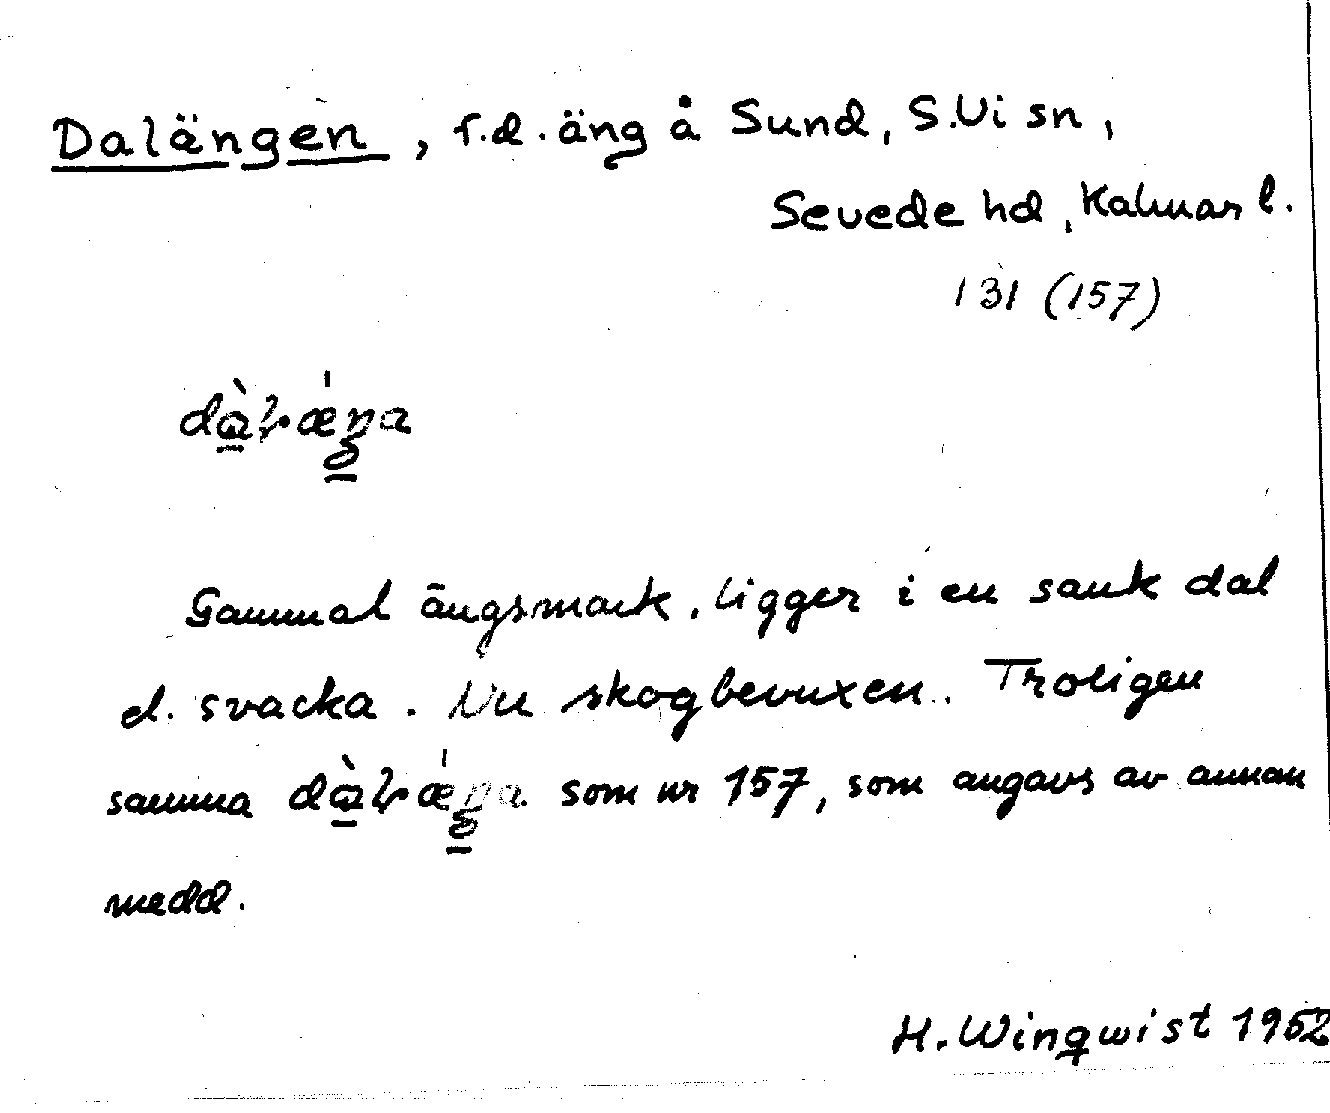 Dalängen, f.d. äng å Sund, S.Vi sn,
Sevede hd, Kalmar l.
131 (157)
dàlǽŋa
Gammal ängsmark. Ligger i en sank dal
el. svacka. Nu skogbevuxen. Troligen
samma dàlǽŋa som nr 157, som angavs av annan
medd.
H. Winqwist 1952